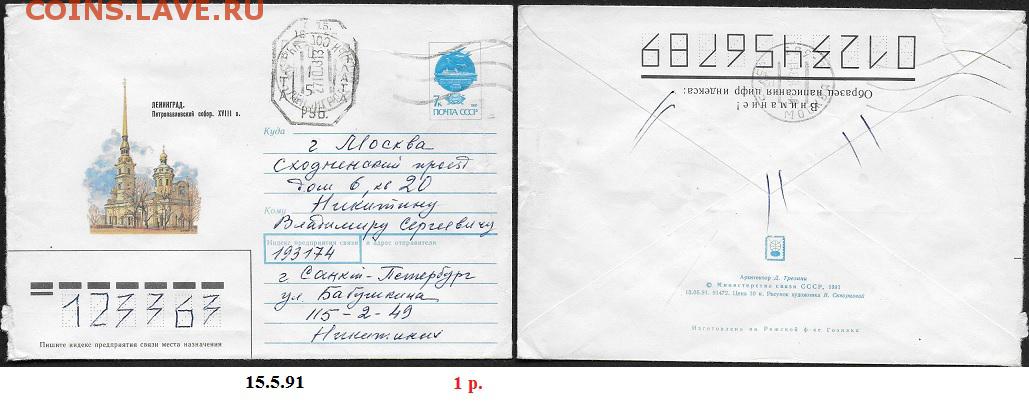 COINS.LAVE.RU
ЛЕНИНГРАД.
Петропавловский собор. XVIII в.
7к
ПОЧТА СССР
РУБ.
Куда
г Москва
Сходненский проезд
дом 6, кв 20
Кому
Никитину
Владимиру Сергеевичу
Индекс предприятия связи и адрес отправителя
193174
г. Санкт-Петербург
ул. Бабушкина
115-2-49
Никитиных
123363
Пишите индекс предприятия связи места назначения
0123456789
Образец написания цифр индекса:
Внимание!
МОСКВА
Архитектор Д. Трезини
© Министерство связи СССР, 1991
15.05.91. 91472. Цена 10 к. Рисунок художника В. Сихоревой
Изготовлено на Рижской ф-ке Гознака
15.5.91
1 р.